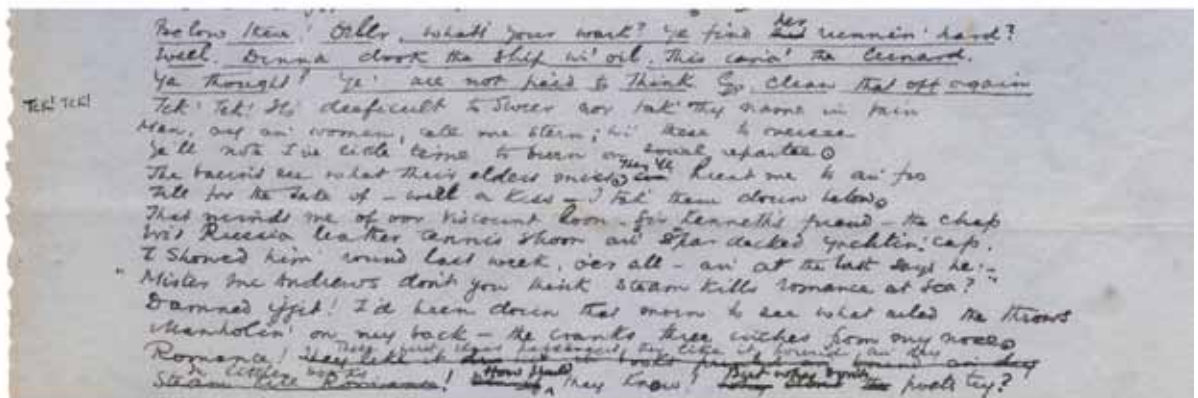 Below there! Oiler, what's your wark? Ye find her runnin' hard?
Well. Dinna drook the ship wi' oil. This isna' the Cunard.
Ye thought? Ye are not paid to think Go, clean that off again
Tck! Tck! Tck! It's deeficult to sweer nor tak' Thy name in vain
Men, ay an' women, call me stern; wi' these to oversee
Ye'll note I've little time to burn on social repartee.
The bairns see what their elders miss. They'll hunt me to an' fro
Till for the sake of – well a kiss – I tak' them down below.
That minds me of our Viscount loon – Sir Kenneth's friend – the chap
Wi' Russia leather tennis shoon an' spar decked yachtin' cap.
I showed him round last week, o'er all – an' at the last says he:–
"Mister Mc Andrews don't you think steam kills romance at sea?"
Damned ijjit! I'd been down that morn to see what ailed the throws
Manholin' on my back – the cranks three inches from my nose.
Romance! They like it
In little books
Steam Romance! they know! poetry?